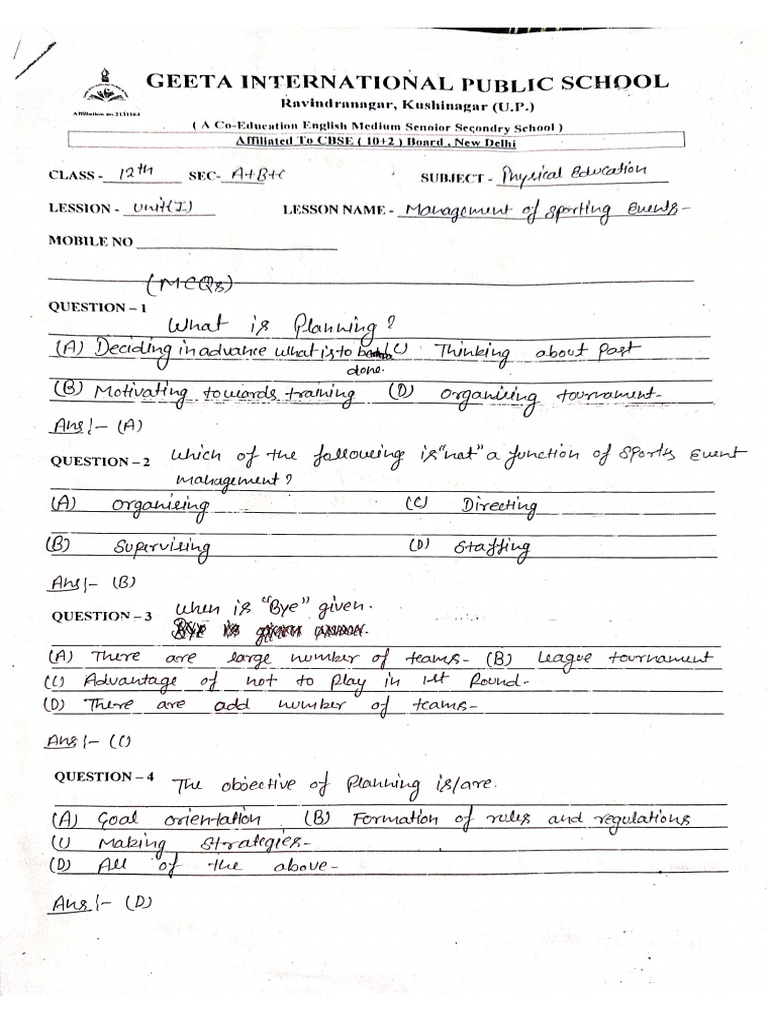 GEETA INTERNATIONAL PUBLIC SCHOOL
Ravindranagar, Kushinagar (U.P.)
Affiliation no.2131164
( A Co-Education English Medium Sennior Secondry School )
Affiliated To CBSE ( 10+2 ) Board , New Delhi
CLASS - 12th SEC- A+B+C SUBJECT - Physical Education
LESSION - Unit(I) LESSON NAME - Management of sporting Events-
MOBILE NO
(MCQs)
QUESTION – 1
What is Planning?
(A) Deciding in advance what is to be (C) Thinking about Past
done.
(B) Motivating towards training (D) organising tournament-
Ans!- (A)
QUESTION – 2 which of the following is "not" a function of sports event
management?
(A) organising (C) Directing
(B) Supervising (D) Staffing
Ans!- (B)
QUESTION – 3 when is "Bye" given.
(A) There are large number of teams- (B) League tournament
(C) Advantage of not to Play in 1st Round-
(D) There are add number of teams-
Ans!- (C)
QUESTION – 4 The objective of Planning is/are.
(A) Goal orientation (B) Formation of rules and regulations
(C) Making Strategies-
(D) All of the above-
Ans!- (D)